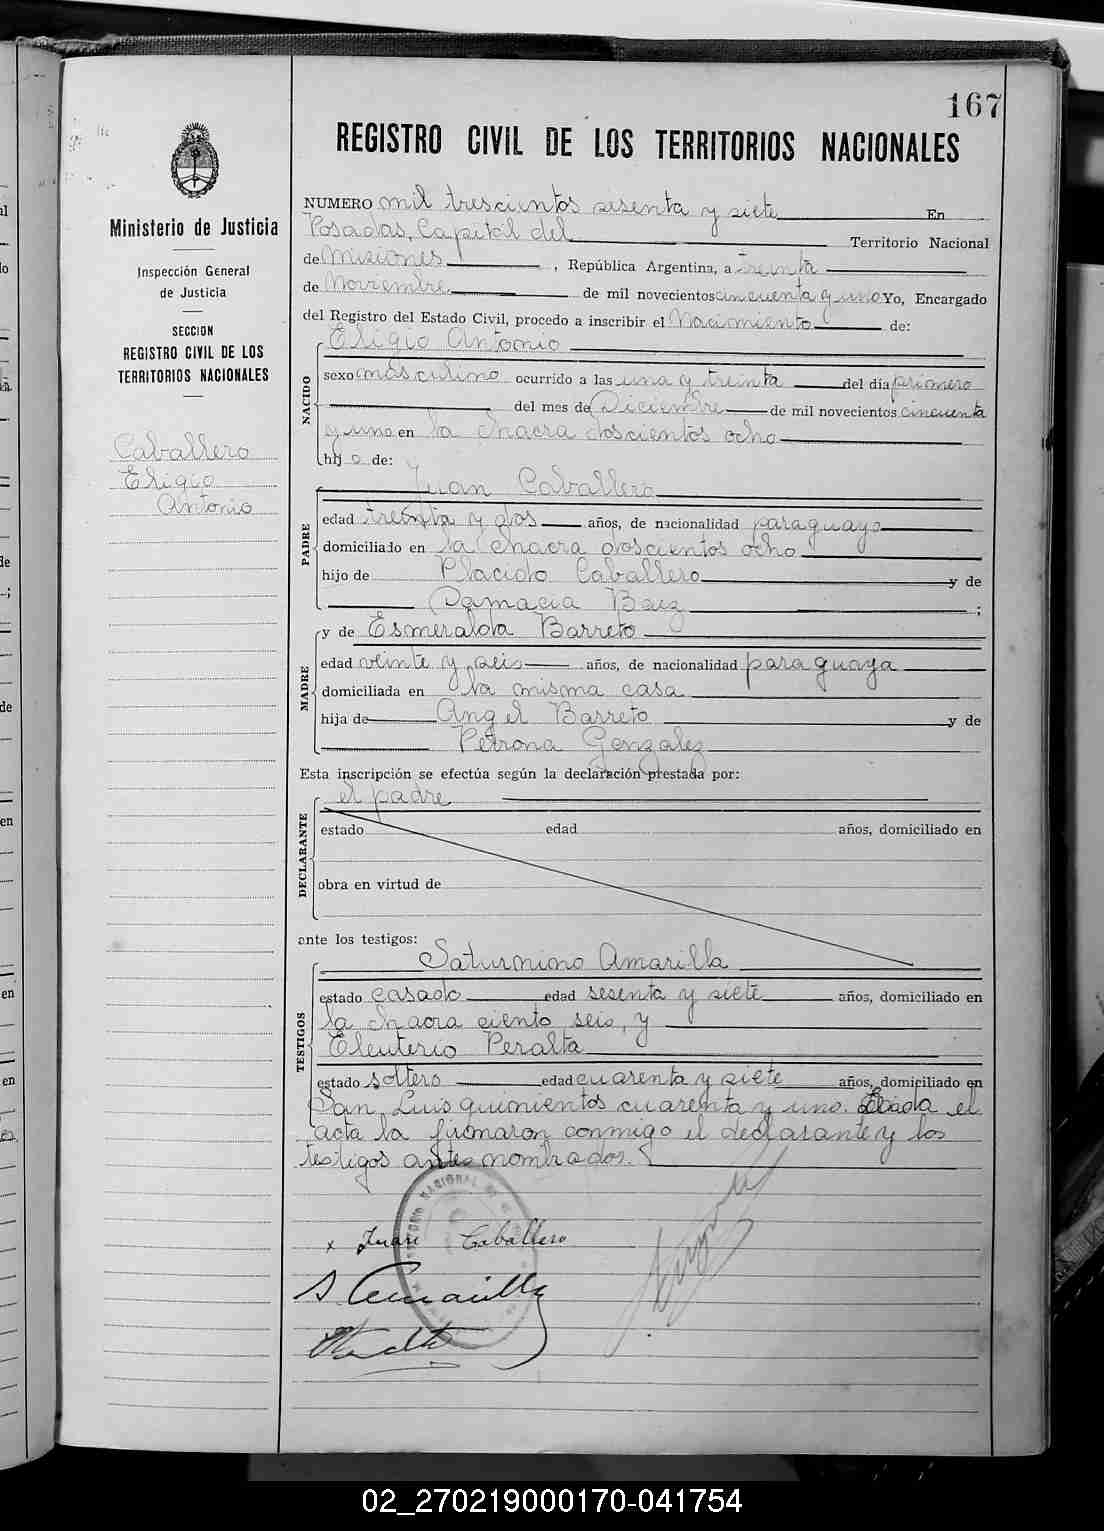 167
REGISTRO CIVIL DE LOS TERRITORIOS NACIONALES
Ministerio de Justicia
Inspección General
de Justicia
SECCION
REGISTRO CIVIL DE LOS
TERRITORIOS NACIONALES
Caballero
Eligio
Antonio
NUMERO mil trescientos sesenta y siete En
Posadas, Capital del Territorio Nacional
de Misiones, República Argentina, a treinta
de Noviembre de mil novecientos cincuenta y uno Yo, Encargado
del Registro del Estado Civil, procedo a inscribir el Nacimiento de:
Eligio Antonio
NACIDO
sexo masculino ocurrido a las una y treinta del día primero
del mes de Diciembre de mil novecientos cincuenta
y uno en la chacra doscientos ocho
hijo de:
Juan Caballero
PADRE
edad treinta y dos años, de nacionalidad paraguayo
domiciliado en la chacra doscientos ocho
hijo de Placido Caballero y de
Damacia Baez ;
y de Esmeralda Barreto
MADRE
edad veinte y seis años, de nacionalidad paraguaya
domiciliada en la misma casa
hija de Angel Barreto y de
Petrona Gonzalez
Esta inscripción se efectúa según la declaración prestada por:
el padre
DECLARANTE
estado edad años, domiciliado en
obra en virtud de
ante los testigos:
Saturnino Amarilla
TESTIGOS
estado casado edad sesenta y siete años, domiciliado en
la chacra ciento seis, y
Eleuterio Peralta
estado soltero edad cuarenta y siete años, domiciliado en
San Luis quinientos cuarenta y uno. Leada el
acta la firmaron conmigo el declarante y los
testigos antes nombrados.
x Juan Caballero
S. Amarilla
02_270219000170-041754